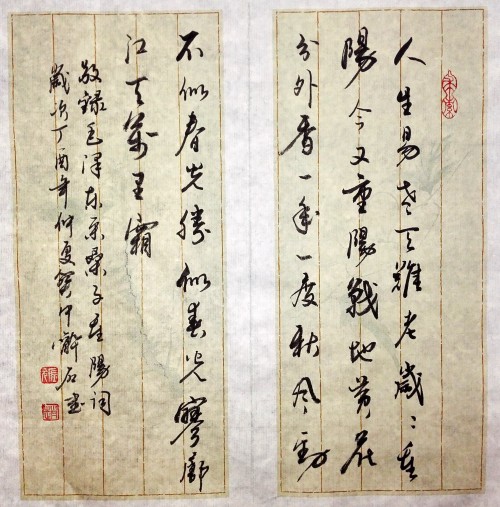 人生易老天難老歲〻重
陽今又重陽戰地黄花
分外香一年一度秋風勁
不似春光勝似春光寥廓
江天萬里霜
敬錄毛澤东采桑子重陽词
歲次丁酉年仲夏石書